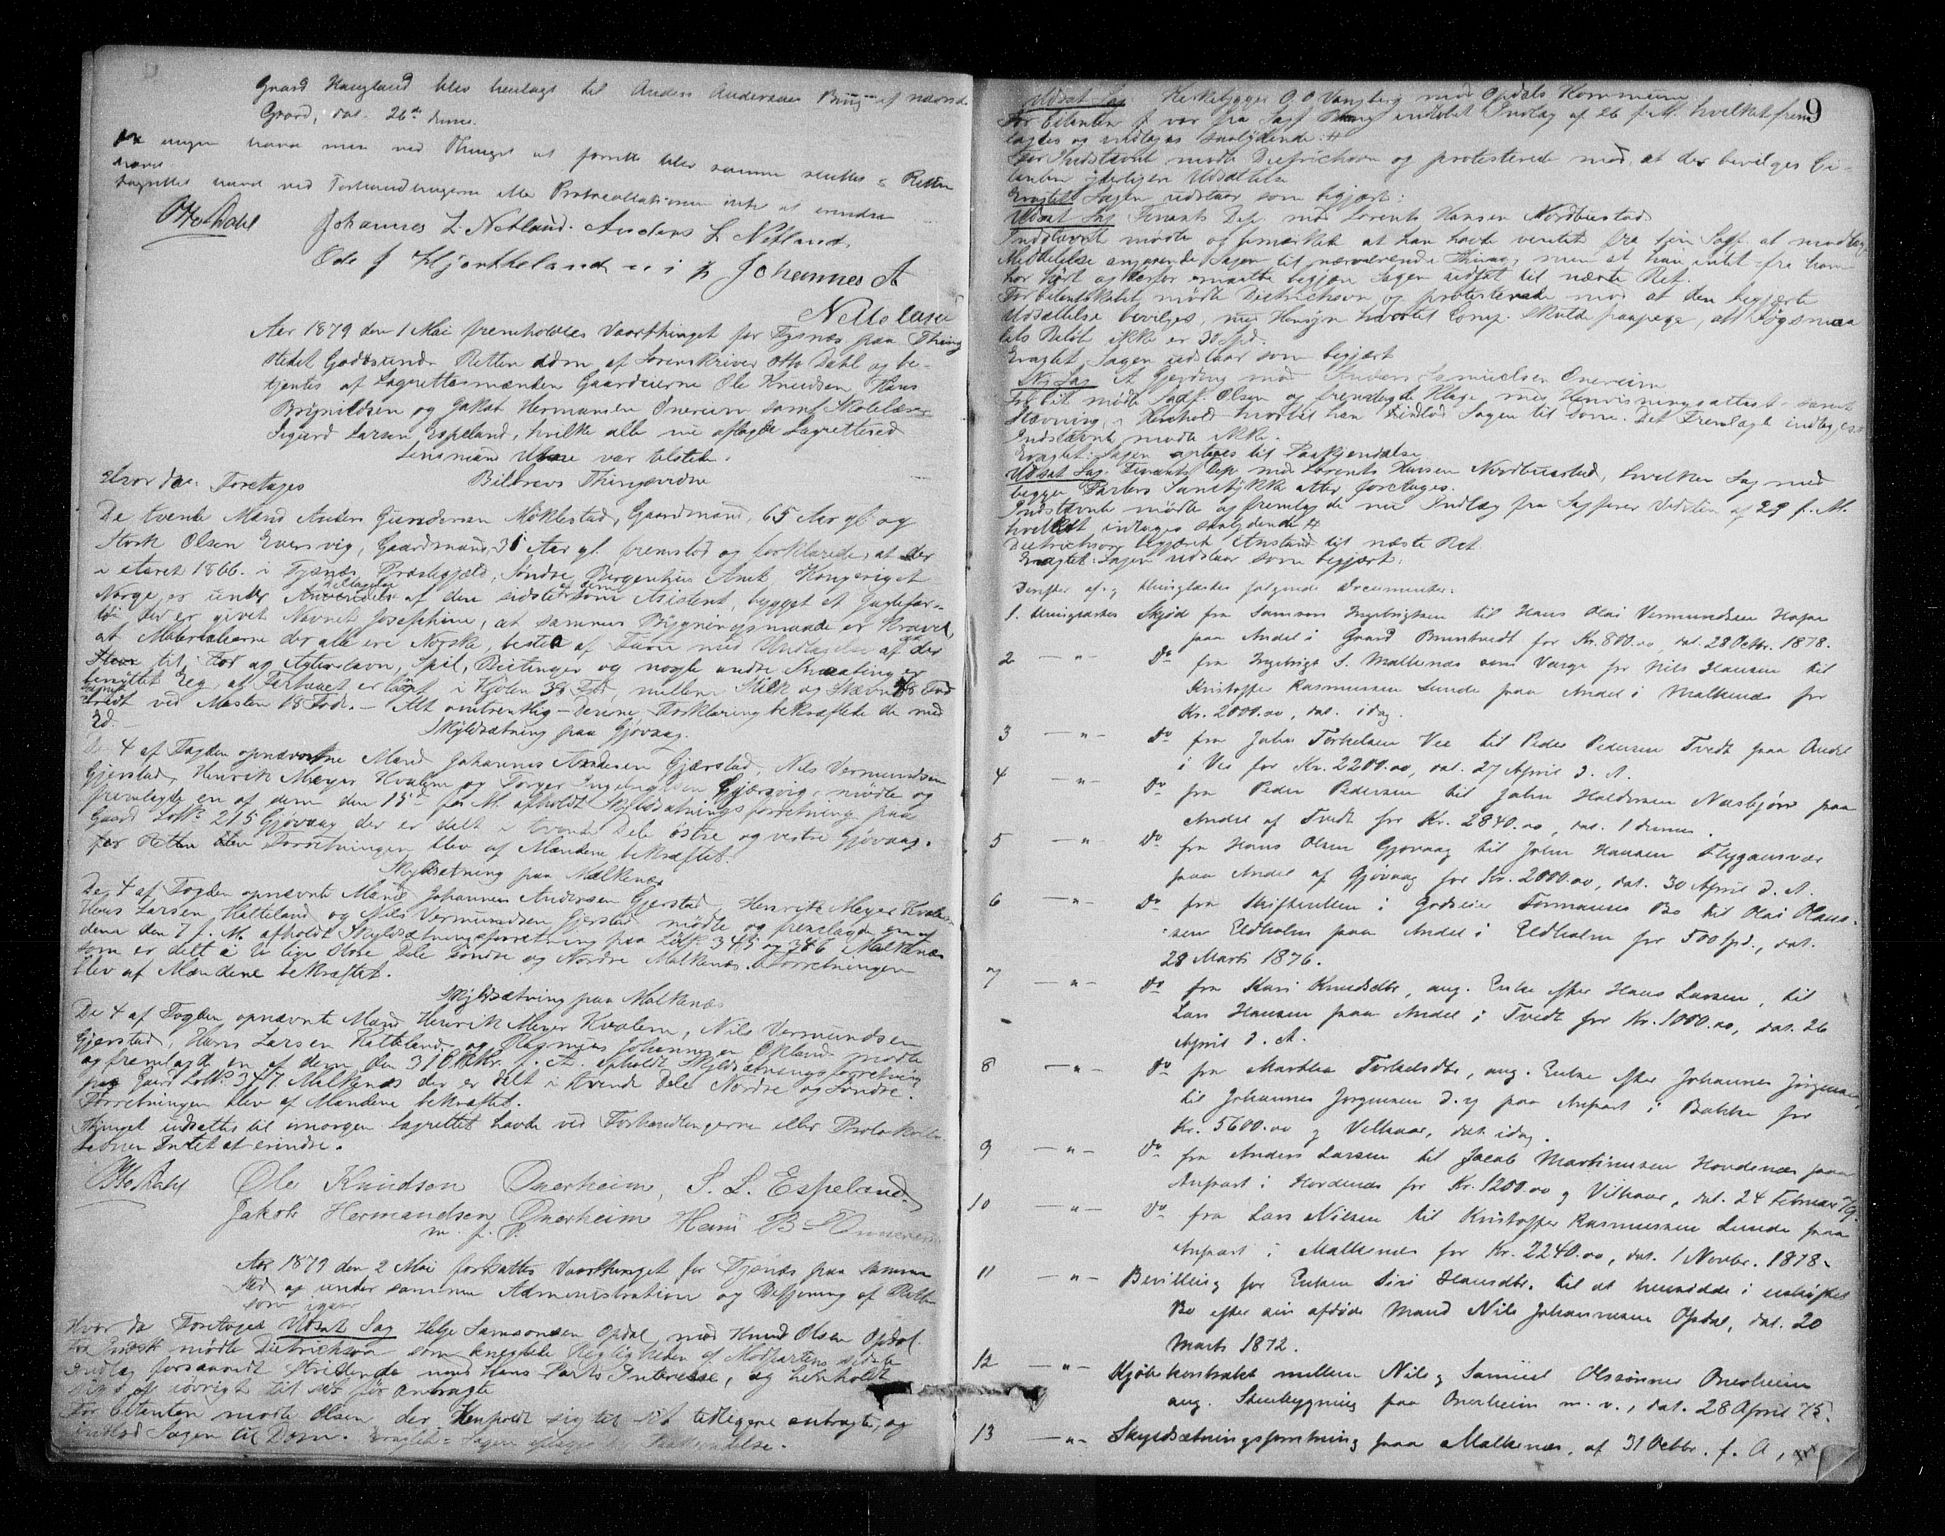 Gaard Haugland blev henlagt til Anders Andersens Brug af nævnte
Gaard, dat. 26de dennes.
ingen havde mere ved Thinget at forrette blev samme sluttet. Retten
havde
Lagrettet havde ved Forhandlingerne eller Protocollationen intet at erindre
Otto Dahl Johannes L. Netland. Anders L. Netland.
Ole J Hjertheland m i p Johannes A
Netteland
Aar 1879 den 1 Mai fremholdtes Vaarthinget for Tysnes paa Thing
stedet Godøsund. Retten adm. af Sorenskriver Otto Dahl og be-
tjentes af Lagrettesmændene Gaardmændene Ole Knudsen, Hans
Brynildsen og Jakob Hermansen Onereim samt Skolelærer
Sigurd Larsen Espeland, hvilke alle nu aflagde Lagretteed
Lensmand var tilstede.
Hvor da: Foretoges Bilbrevs Thingsvidne
De tvende Mænd Anders Gundersen Møklestad, Gaardmand, 65 Aar gl. og
Stork Olsen Eversvig, Gaardmand, 31 Aar gl. fremstod og forklarede, at der
i Aaret 1866 i Tysnes Præstegjeld, Søndre Bergenhus Amt Kongeriget
Norge, er under af den sidste som Assistent, bygget et Jagtefar-
tøi der er givet Navnet Josephine, at sammes Bygningsmaade er Kravel,
at Materialierne der alle ere Norske, bestaa af Furu med Undtagelse af der
til For og Agterstavn, Spil, Beitinger og nogle andre Smaating er
benyttet Eg, at Fartøiet er langt i Kjølen 38 Fod, mellem Stilk og Stævn 48 Fod
bredt ved Masten 18 Fod. – Alt omtrentlig – Denne Forklaring bekræftede de med
Ed. –
Skyldsætning paa Gjøvaag.
De 4 af Fogden opnævnte Mænd Johannes Andersen Gjærstad, Nils Vermundsen
Gjerstad, Henrik Meyer Kvalem og Torger Ingebrigtsen Gjersvig, mødte og
fremlagde en af dem den 15de f. M. afholdt Skyldsætningsforretning paa
Gaard LøbN 215 Gjøvaag der er delt i tvende Dele østre og vestre Gjøvaag.
for Retten blev Forretningen blev af Mændene bekræftet.
Skyldsætning paa Malkenæs
De 4 af Fogden opnævnte Mænd Johannes Andersen Gjerstad, Henrik Meyer Kvalem
Hans Larsen Hatteland og Nils Vermundsen Gjerstad mødte og fremlagde en af
dem den 7 f. M. afholdt Skyldsætningsforretning paa LøbN 345 og 346 Malkenæs
som er delt i lige store Dele Søndre og Nordre Malkenæs. Forretningen
blev af Mændene bekræftet.
Skyldsætning paa Malkenæs
De 4 af Fogden opnævnte Mænd Henrik Meyer Kvalem, Nils Vermundsen
Gjerstad, Hans Larsen Hatteland og Rasmus Johannessen Opland mødte
og fremlagde en af dem den 31 Oktbr. f. A. afholdt Skyldsætningsforretning
paa Gaard LøbN 347 Malkenæs der er delt i tvende Dele Nordre og Søndre.
Forretningen blev af Mændene bekræftet.
Thinget udsattes til imorgen. Lagrettet havde ved Forhandlingerne eller Protokolla-
tionen Intet at erindre.
Otto Dahl Ole Knudsen Onerheim, S. L. Espeland
Jakob Hermandsen Onerheim Hans B
m. f. P.
Aar 1879 den 2 Mai fortsattes Vaarthinget for Tysnæs paa samme
Sted og under samme Administration og Betjening af Retten
som igaar
Hvor da Foretoges Udsat Sag Helje Samsonsen Opdal mod Knud Olsen Opdal.
mødte Dietrichson som Rigtigheden af Modpartens sidste
Indlæg forsaavidt stridende mod Hans Parts Interesse, og henholdt
sig iøvrigt til det før Anbragte
For Citanten mødte Olsen der henholdt sig til det tidligere anbragte, og
indlod Sagen til Dom. Eragtet: Sagen optages til Paakjendelse.
9
Udsat Sag Kirkebygger O. O. Vangberg mod Opdals Kommune
For Citanten var fra Sagf. indløbet Indlæg af 26 f. M. hvilket frem
lagdes og indtages saalydende: #
For Indstævnte mødte Dietrichson og protesterede mod, at der bevilges Ci-
tanten yderligere Udsættelse
Eragtet: Sagen udstaar som begjært:
Udsat Sag Finants Dep. mod Lorents Hansen Nordbustad
Indstævnte mødte og bemærkede at han havde ventet fra sin Sagf. at modtage
Meddelelse angaaende Sagen til nærværende Thing, men at han intet fra ham
har hørt og derfor maatte begjære Sagen udsat til næste Ret.
For Citantskabet mødte Dietrichson og protesterede mod at den begjærte
Udsættelse bevilges, med Hensyn hvortil Comp. skulde paapege, at Søgsmaa
lets Beløb ikke er 30 Spd.
Eragtet: Sagen udstaar som begjært
Ny Sag A Gjerding mod Anders Samuelsen Onereim
For Cit. mødte Sagf. Olsen og fremlagde Klage med Henvisningsattest samt
Stævning, i Henhold hvortil han indlod Sagen til Dom. Det Fremlagte indtages:
Indstævnte mødte ikke.
Eragtet: Sagen optages til Paakjendelse.
Udsat Sag Finants Dep. mod Lorents Hansen Nordbustad, hvilken Sag med
begge Parters Samtykke atter foretoges.
Indstævnte mødte og fremlagde nu Indlæg fra Sagfører af 29 f. M.
hvilket indtages saalydende #
Dietrichson begjærte Anstand til næste Ret.
Eragtet: Sagen udstaar som begjært:
Derefter af- og thinglæstes følgende Documenter:
1. thinglæstes Skjøde fra Samson Ingebrigtsen til Hans Olai Vermundsen
paa Andel i Gaard Bruntveidt for Kr. 800.00, dat. 28 Octbr. 1878.
2 —"— Do fra Ingebrigt S. Malkenæs som Værge for Nils Hansen til
Kristoffer Rasmussen Lunde paa Andel i Malkenæs for
Kr. 2000.00, dat. idag.
3 —"— Do fra John Torkelsen Vee til Peder Pedersen Tvedt paa Andel
i Vee for Kr. 2200.00, dat. 27 April d. A.
4 —"— Do fra Peder Pedersen til John Haldorsen Næsbjørn paa
Andel af Tvedt for Kr. 2840.00, dat. 1 dennes.
5 —"— Do fra Hans Olsen Gjøvaag til John Hansen Flygansvær
paa Andel af Gjøvaag for Kr. 2000.00, dat. 30 April d. A.
6 —"— Do fra Skifteretten i Godseier Formanns Bo til Olai Olaus-
sen Eldholm paa Andel i Eldholm for 500 Spd., dat.
28 Marts 1876.
7 —"— Do fra Kari Knudsdtr, ang. Enke efter Hans Larsen, til
Lars Hansen paa Andel i Tvedt for Kr. 1000.00, dat. 26
April d. A.
8 —"— Do fra Marthea Torkelsdtr, ang. Enke efter Johannes Jørgensen,
til Johannes Jørgensen d. y paa Anpart i Bakke for
Kr. 5600.00 og Vilkaar, dat. idag.
9 —"— Do fra Anders Larsen til Jacob Martinusen Hovdenæs paa
Anpart i Hordenæs for Kr. 1200.00 og Vilkaar, dat. 24 Februar 79.
10 —"— Do fra Lars Nilsen til Kristoffer Rasmussen Lunde paa
Anpart i Malkenæs for Kr. 2240.00, dat. 1 Novbr. 1878.
11 —"— Bevilling for Enken Siri Hansdtr. til at hensidde i uskiftet
Bo efter sin afdøde Mand Nils Johannesen Opdal, dat. 20
Marts 1872.
12 —"— Kjøbekontrakt mellem Nils og Samuel Olssønner Onerheim
ang. Stenbygning paa Onerheim m. v., dat. 28 April 75.
13 —"— Skyldsætningsforretning paa Malkenæs, af 31 Octbr. f. A,